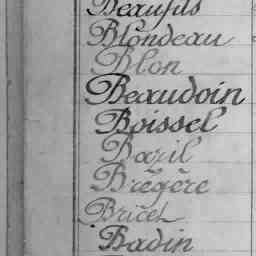 Beaufils
Blondeau
Blon
Beaudoin
Boissel
Bazil
Brégère
Bricet
Badin